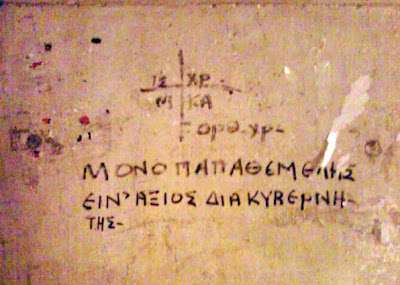 ΙΣ ΧΡ
ΝΙ ΚΑ
ΟΡΘ. ΧΡ-
ΜΟΝΟ ΠΑΠΑΘΕΜΕΛΗΣ
ΕΙΝ' ΑΞΙΟΣ ΔΙΑ ΚΥΒΕΡΝΗ-
ΤΗΣ-